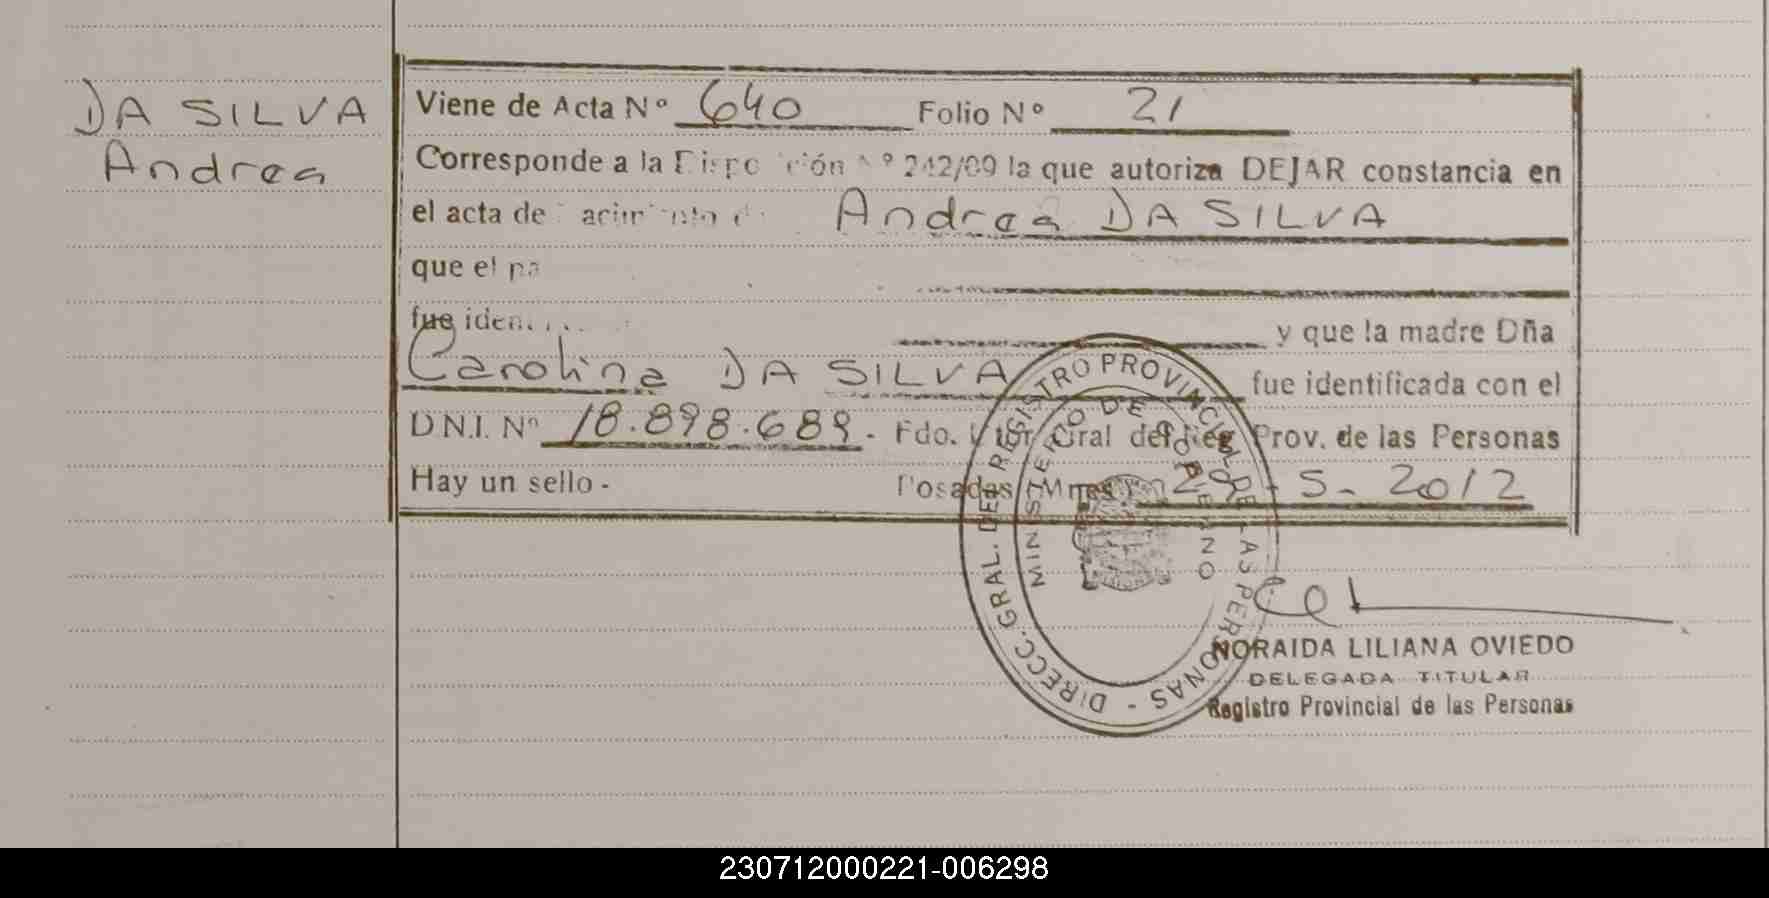 DA SILVA
Andrea
Viene de Acta Nº 640 Folio Nº 21
Corresponde a la Disposición Nº 242/09 la que autoriza DEJAR constancia en
el acta de nacimiento de Andrea DA SILVA
que el pa
fue iden y que la madre Dña
Carolina DA SILVA fue identificada con el
D.N.I. Nº 18.898.689. Fdo. Dtor Gral del Reg Prov. de las Personas
Hay un sello - Posadas, Mnes, 29-5-2012
DIRECC. GRAL. DEL REGISTRO PROVINCIAL DE LAS PERSONAS -
MINISTERIO DE GOBIERNO
NORAIDA LILIANA OVIEDO
DELEGADA TITULAR
Registro Provincial de las Personas
230712000221-006298